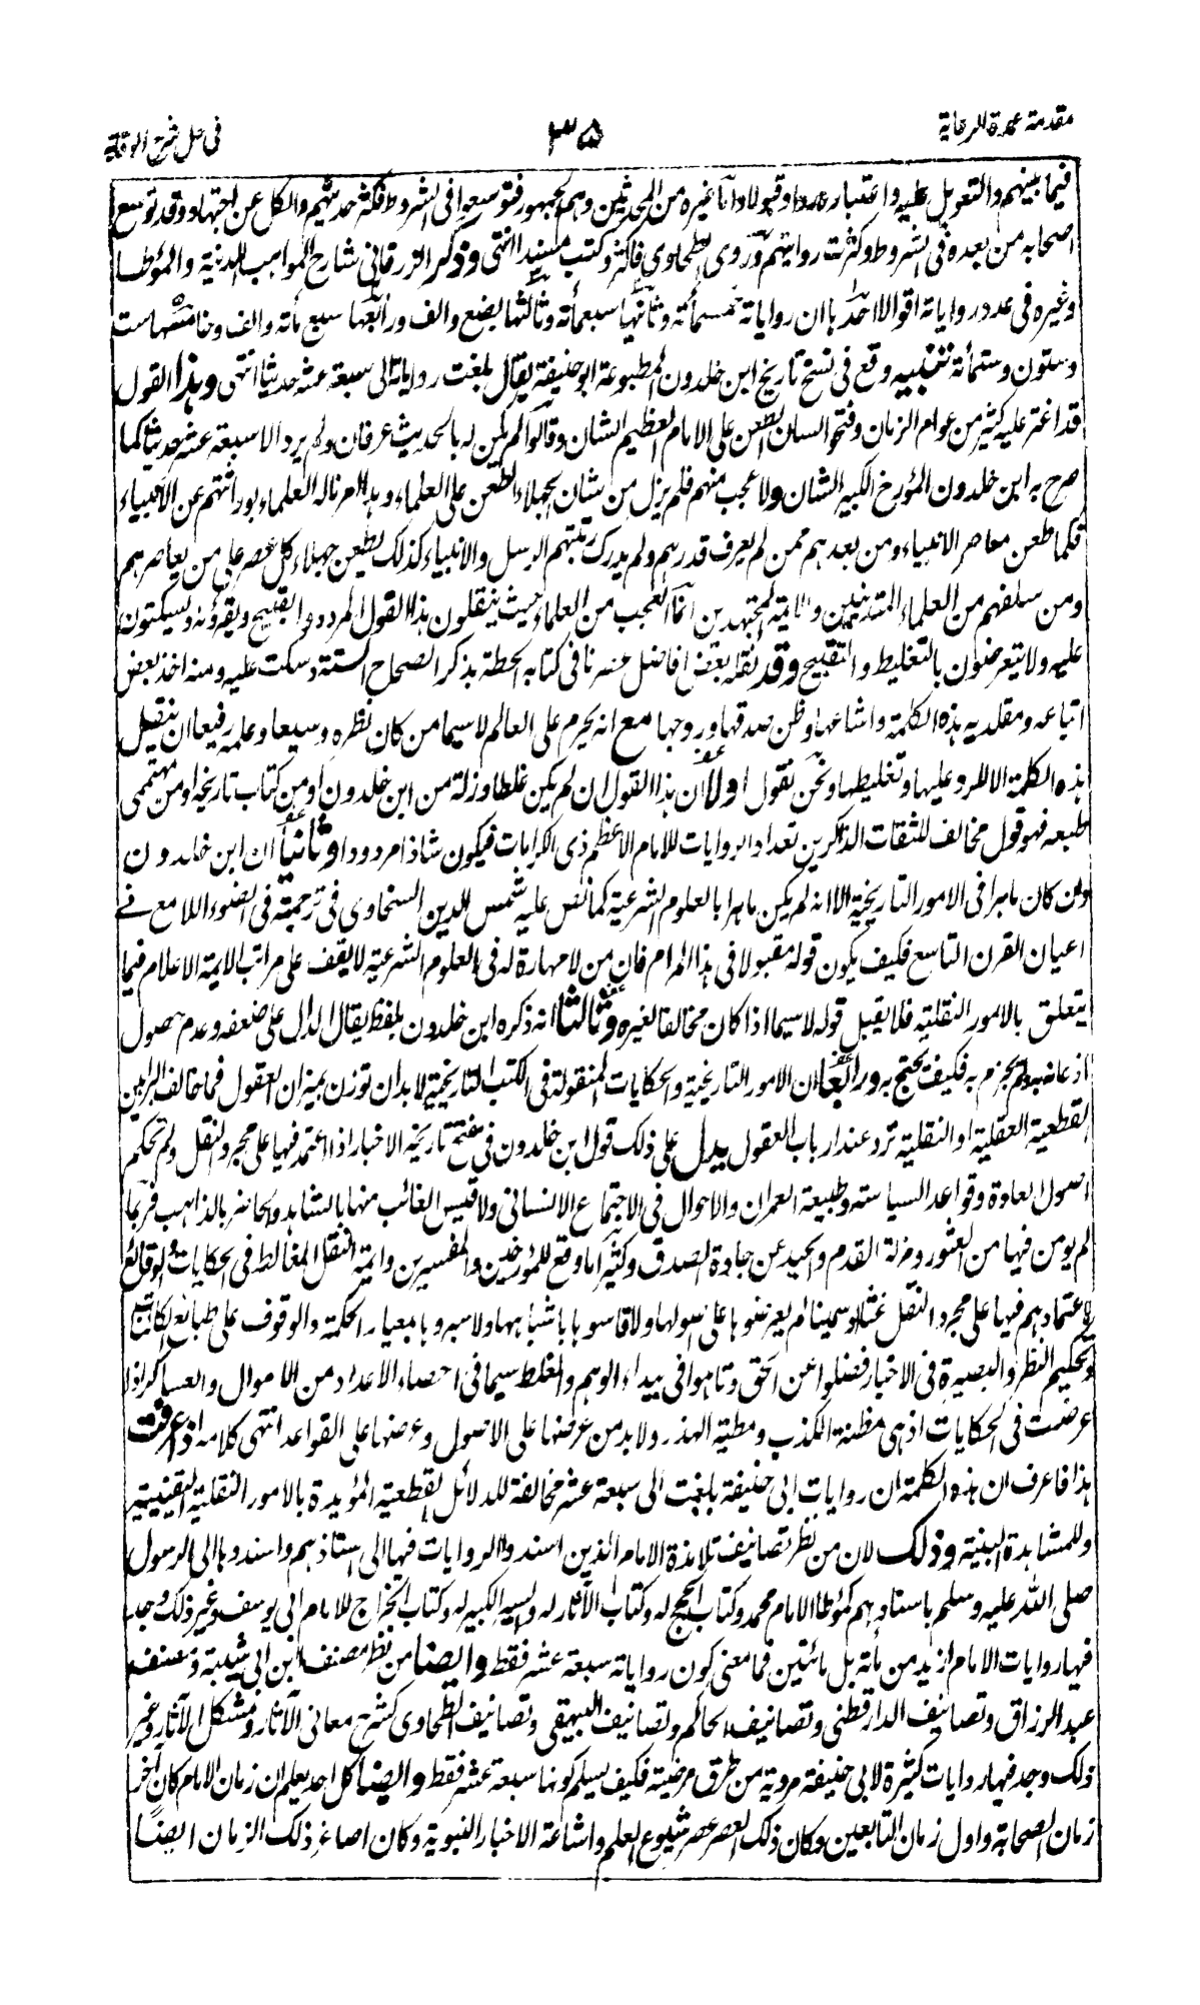 مقدمة عمدة الرعاية
٣٥
فى حل شرح الوقاية
فيما بينهم والتعويل عليه واعتباره ردا وقبولا واما غيره من المحدثين وهم الجمهور فتوسعوا فى الشروط فكثر حديثهم والكل عن اجتهاد وقد توسع
اصحابه من بعده فى الشروط وكثرت روايتهم وروى الطحاوي فاكثر وكتب مسندا انتهى وذكر الزرقاني شارح المواهب اللدنية والمؤطا
وغيره فى عدد رواياته اقوالا احدها ان رواياته خمسمأته وثانيها سبعمأته وثالثها بضع والف ورابعها سبع مأته والف وخامسها ست
وستون وستمأئة تنبيه وقع فى نسخ تاريخ ابن خلدون المطبوعة ابو حنيفة يقال بلغت رواياته الى سبعة عشر حديثا انتهى وهذا القول
قد اغتر عليه كثير من عوام الزمان وفتحوا لسان الطعن على الامام العظيم الشان وقالوا لم يكن له بالحديث عرفان ولم يرو الا سبعة عشر حديثا كما
صرح به ابن خلدون المؤرخ الكبير الشان ولا عجب منهم فلم يزل من شان الجهلاء الطعن على العلماء وهذا الامر ناله العلماء بوراثتهم عن الانبياء
فكما طعن معاصر الانبياء ومن بعدهم ممن لم يعرف قدرهم ولم يدرك رتبتهم الرسل والانبياء كذلك يطعن جهلاء كل عصر على من يعاصرهم
ومن سلفهم من العلماء المتدينين والائمة المجتهدين انما العجب من العلماء حيث ينقلون هذا القول المردود والقبيح ويقرؤنه ويسكتون
عليه ولا يتعرضون بالتغليط والتقبيح وقد نقله بعض افاضل عصرنا فى كتابه الحطة بذكر الصحاح الستة وسكت عليه ومنه اخذ بعض
اتباعه ومقلديه هذه الكلمة واشاعها وظن صدقها وروجها مع انه يحرم على العالم لا سيما من كان نظره وسيعا وعلمه رفيعا ان ينقل
هذه الكلمة الا للرد عليها وتغليطها ونحن نقول اولا ان هذا القول ان لم يكن غلطا وزلة من ابن خلدون او من كتاب تاريخه او من مهتمى
طبعه فهو قول مخالف للثقات الذاكرين تعداد الروايات للامام الاعظم ذى الكرامات فيكون شاذا مردودا وثانيا ان ابن خلدون
وان كان ماهرا فى الامور التاريخية الا انه لم يكن ماهرا بالعلوم الشرعية كما نص عليه شمس الدين السخاوى فى ترجمته فى الضوء اللامع فے
اعيان القرن التاسع فكيف يكون قوله مقبولا فى هذا المرام فان من لا مهارة له فى العلوم الشرعية لا يقف على مراتب الائمة الاعلام فيما
يتعلق بالامور النقلية فلا يقبل قوله لا سيما اذا كان مخالفا لغيره وثالثا انه ذكره ابن خلدون بلفظ يقال الدال على ضعفه وعدم حصول
اذعانه به ولم يجزم به فكيف يحتج به ورابعا ان الامور التاريخية والحكايات المنقولة فى الكتب التاريخية لا بد ان توزن بميزان العقول فما خالف البراهين
القطعية العقلية او النقلية ترد عند ارباب العقول يدل على ذلك قول ابن خلدون فى مفتح تاريخه الاخبار اذا اعتمد فيها على مجرد النقل ولم تحكم
اصول العادة وقواعد السياسة وطبيعة العمران والاحوال فى الاجتماع الانسانى ولا قيس الغائب منها بالشاهد والحاضر بالذاهب فربما
لم يومن فيها من العثور ومزلة القدم والحيد عن جادة الصدق وكثيرا ما وقع للمؤرخين والمفسرين وائمة النقل المغالط فى الحكايات والوقائع
لاعتمادهم فيها على مجرد النقل غثا او سمينا لم يعرضوها على اصولها ولا قاسوها باشباهها ولا سبروها بمعيار الحكمة والوقوف على طبائع الكائنات
وتحكيم النظر والبصيرة فى الاخبار فضلوا عن الحق وتاهوا فى بيداء الوهم والغلط سيما فى احصاء الاعداد من الاموال والعساكر اذا
عرضت فى الحكايات اذ هى مظنة الكذب ومطية الهذر ولا بد من عرضها على الاصول وعرضها على القواعد انتهى كلامه اذا عرفت
هذا فاعرف ان هذه الكلمة ان روايات ابى حنيفة بلغت الى سبعة عشر مخالفة للدلائل القطعية المؤيدة بالامور النقلية اليقينية
وللمشاهدة البينة وذلك لان من نظر تصانيف تلامذة الامام الذين اسندوا الروايات فيها الى استاذهم واسندوها الى الرسول
صلى الله عليه وسلم باسنادهم كمؤطا الامام محمد وكتاب الحجج له وكتاب الآثار له والسير الكبير له وكتاب الخراج للامام ابى يوسف وغير ذلك وجد
فيها روايات الامام ازيد من مأته بل مائتين فما معنى كون رواياته سبعة عشر فقط وايضا من نظر مصنف ابن ابى شيبة ومصنف
عبد الرزاق وتصانيف الدارقطنى وتصانيف الحاكم وتصانيف البيهقى وتصانيف الطحاوى كشرح معانى الآثار ومشكل الآثار وغير
ذلك وجد فيها روايات كثيرة لابى حنيفة مروية من طرق مرضية فكيف يسلم كونها سبعة عشر فقط وايضا كل احد يعلم ان زمان الامام كان آخر
زمان الصحابة واول زمان التابعين وكان ذلك العصر عصر شيوع العلم واشاعة الاخبار النبوية وكان اصاغر ذلك الزمان ايضا